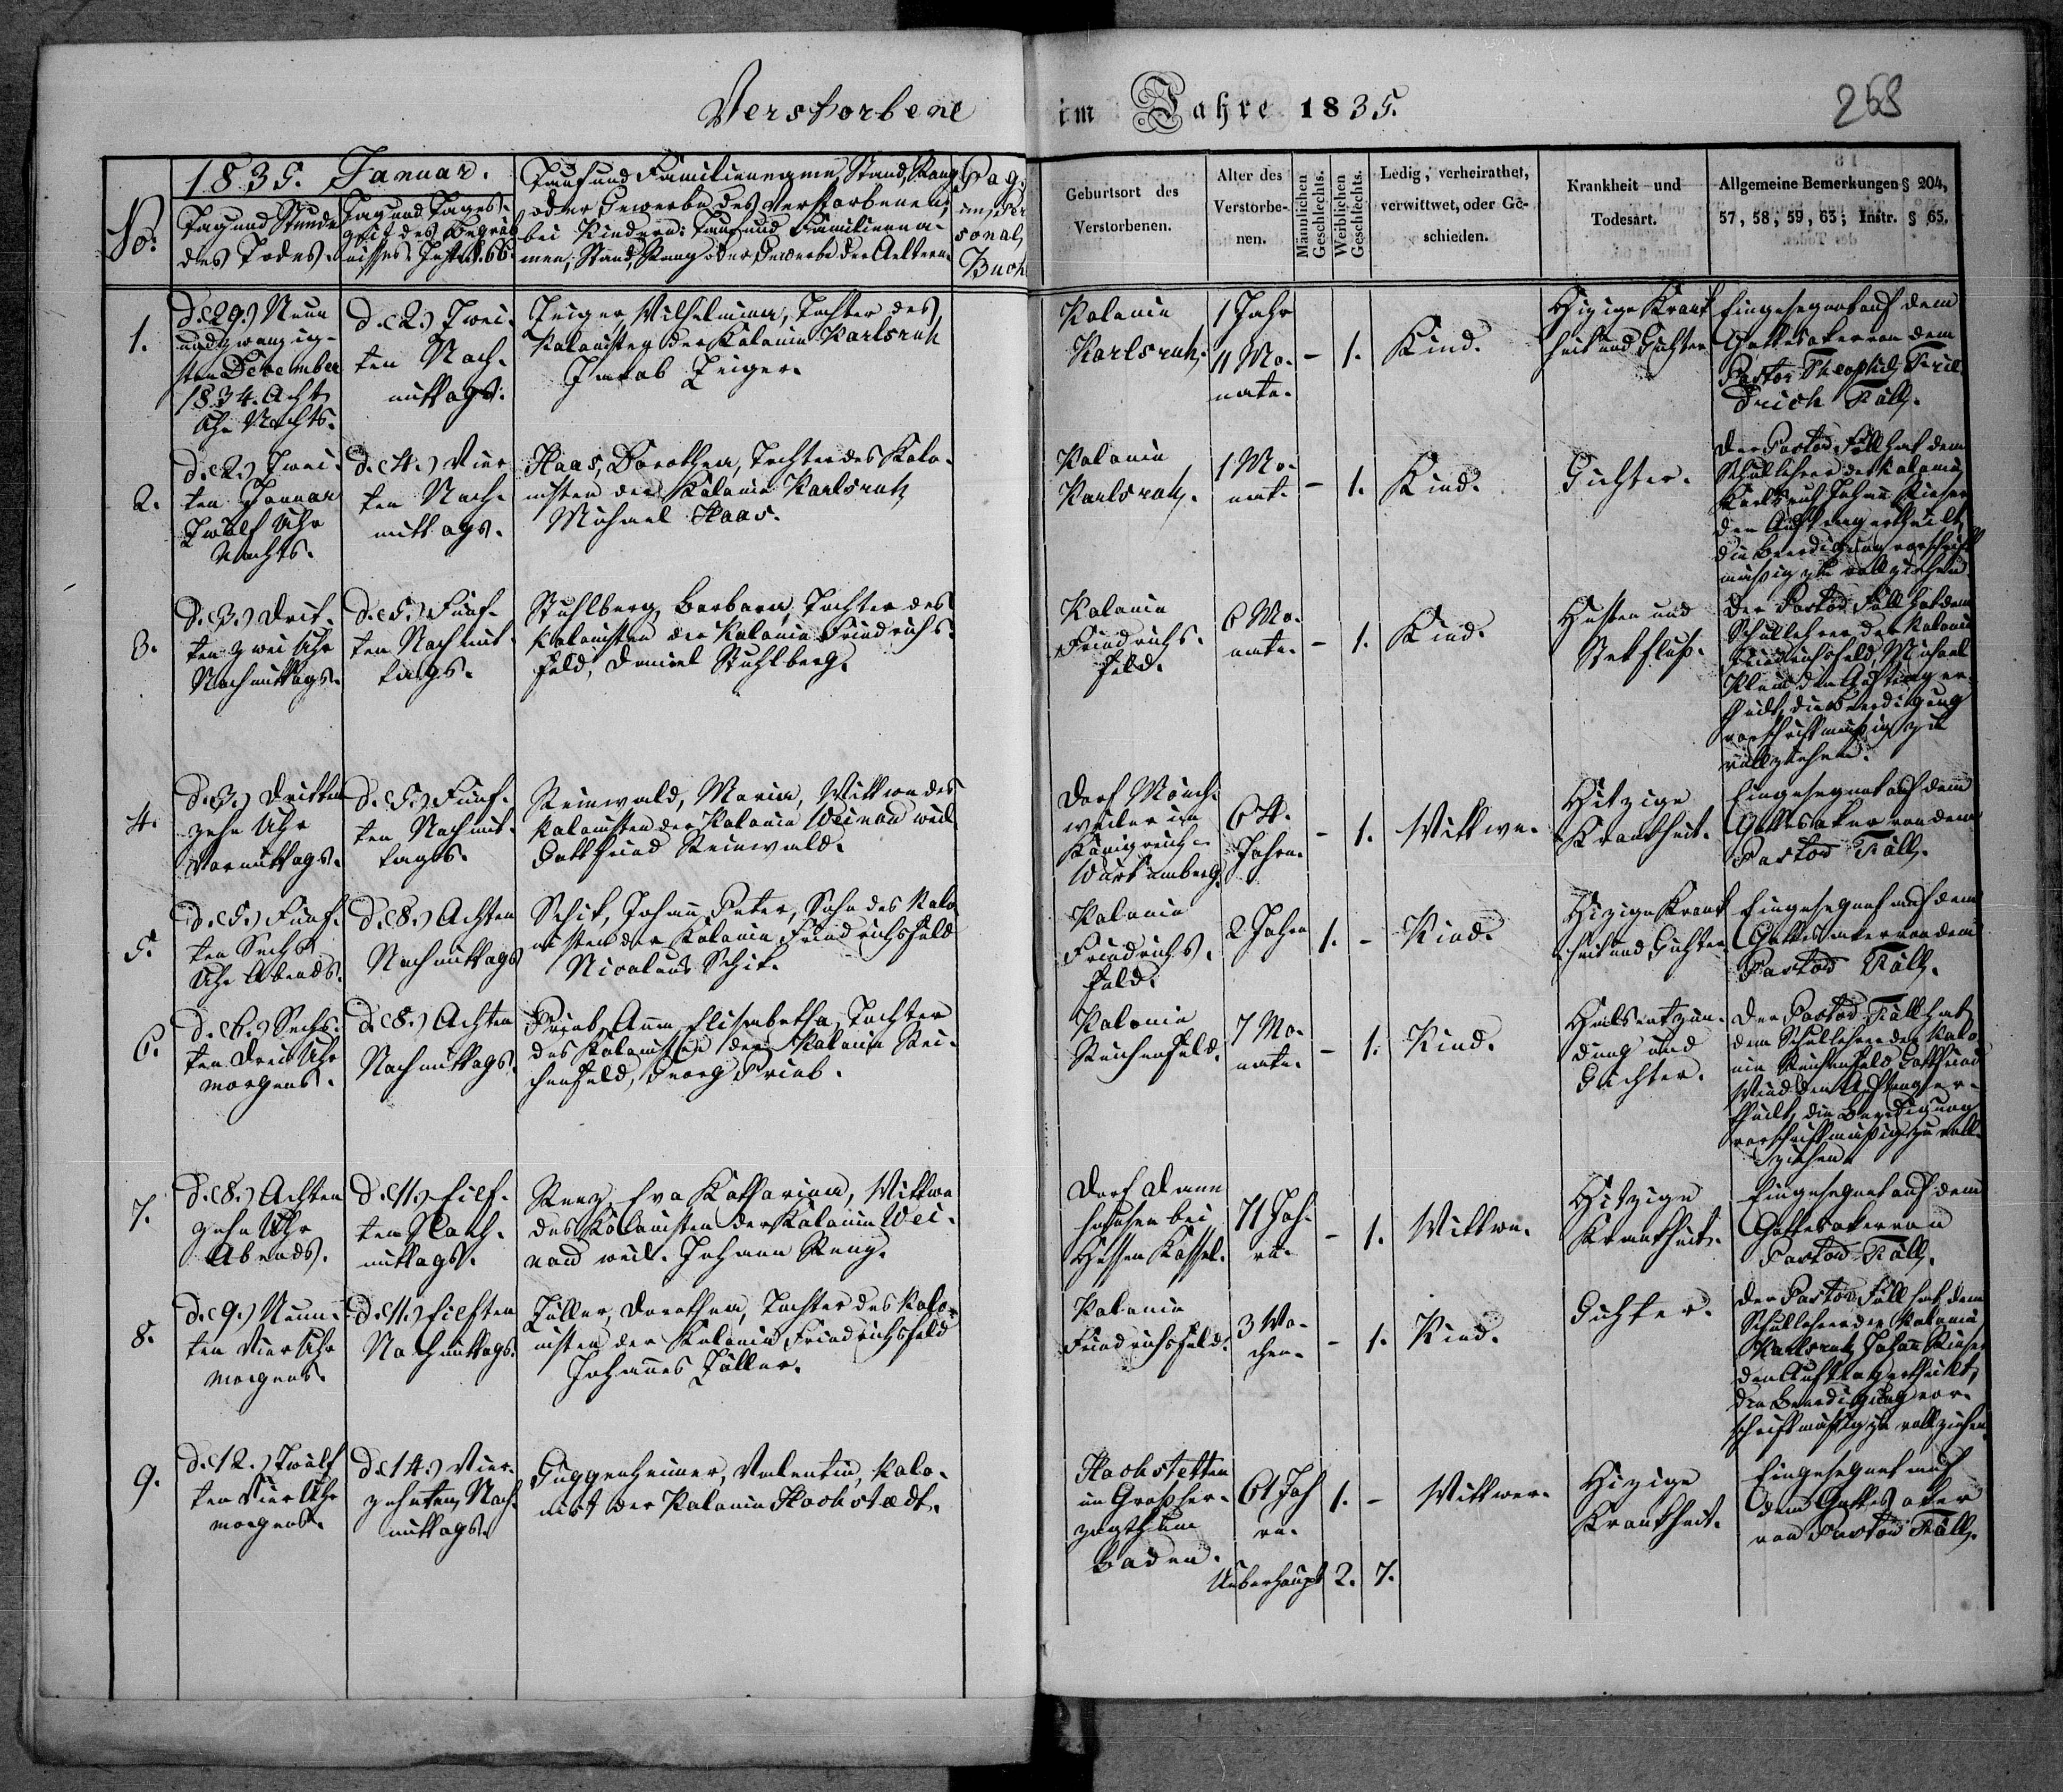 Verstorbene im Jahre 1835.
268
1835. Januar.
No.
Tag und Stunde
des Todes.
Tag und Tages-
zeit des Begräb-
nisses Instr. § 66.
Tauf und Familienname, Stand, Rang
oder Gewerbe des Verstorbenen;
bei Kindern: Tauf und Familienna-
men, Stand, Rang oder Gewerbe der Aeltern.
Pag.
im Per
sonal
Buch
Geburtsort des
Verstorbenen.
Alter des
Verstorbe-
nen.
Männlichen
Geschlechts.
Weiblichen
Geschlechts.
Ledig, verheirathet,
verwittwet, oder Ge-
schieden.
Krankheit und
Todesart.
Allgemeine Bemerkungen § 204,
57, 58, 59, 63; Instr. § 65.
1.
d. (29.) Neun
und zwanzig-
sten December
1834. Acht
Uhr Nachts.
d. (2.) Zwei-
ten Nach-
mittags.
Zeiger, Wilhelmina, Tochter des
Kolonisten der Kolonie Karlsruh
Jakob Zeiger.
Kolonie
Karlsruh.
1 Jahr
11 Mo-
nate.
- 1. Kind.
Hizige Krank
heit und Gichter
Eingesegnet auf dem
Gottesaker von dem
Pastor Theophil Frie
drich Föll.
2.
d. (2.) Zwei-
ten Januar
Zwölf Uhr
Nachts.
d. (4.) Vier
ten Nach-
mittags.
Haas, Dorothea, Tochter des Kolo-
nisten der Kolonie Karlsruh
Michael Haas.
Kolonie
Karlsruh.
1 Mo-
nat.
- 1. Kind.
Gichter.
Der Pastor Föll hat dem
Schullehrer der Kolonie
Karlsruh Johann
den Auftrag ertheilt,
die Beerdigung vorschrift
mäßig zu vollziehen.
3.
d. (3.) Drit-
ten zwei Uhr
Nachmittags.
d. (5.) Fünf-
ten Nachmit-
tags.
Stuhlberg, Barbara, Tochter des
Kolonisten der Kolonie Friedrichs-
feld, Daniel Stuhlberg.
Kolonie
Friedrichs-
feld.
6 Mo-
nate.
- 1. Kind.
Husten und
Stekfluß.
Der Pastor Föll hat dem
Schullehrer der Kolonie
Friedrichsfeld, Michael
Klein den Auftrag er-
theilt, die Beerdigung
vorschriftmäßig zu
vollziehen.
4.
d. (3.) Dritten
zehn Uhr
Vormittags.
d. (5.) Fünf-
ten Nachmit-
tags.
Reinwald, Maria, Wittwe des
Kolonisten der Kolonie Weinau weil.
Gottfried Reinwald.
Dorf Mönch-
weiler im
Königreich
Würtemberg.
64.
Jahre.
- 1. Wittwe.
Hitzige
Krankheit.
Eingesegnet auf dem
Gottesaker von dem
Pastor Föll.
5.
d. (5.) Fünf-
ten Sechs
Uhr Abends.
d. (8.) Achten
Nachmittags
Schik, Johann Peter, Sohn des Kolo
nisten der Kolonie Friedrichsfeld
Nicolaus Schik.
Kolonie
Friedrichs-
feld.
2 Jahre
1. - Kind.
Hizige Krank
heit und Gichter
Eingesegnet auf dem
Gottesaker von dem
Pastor Föll.
6.
d. (6.) Sechs-
ten Drei Uhr
morgens.
d. (8.) Achten
Nachmittags.
Prieb, Anna Elisabetha, Tochter
des Kolonisten der Kolonie Rei-
chenfeld, Georg Prieb.
Kolonie
Reichenfeld.
7 Mo-
nate.
- 1. Kind.
Halsentzün-
dung und
Gichter.
Der Pastor Föll hat
dem Schullehrer der Kolo-
nie Reichenfeld Gottfried
den Auftrag er-
theilt, die Beerdigung
vorschriftmäßig zu voll-
ziehen.
7.
d. (8.) Achten
zehn Uhr
Abends.
d. (11.) Eilf-
ten Nach-
mittags.
Renz, Eva Katharina, Wittwe
des Kolonisten der Kolonie Wei-
nau weil. Johann Renz.
Dorf
hausen bei
Hessen Kassel.
71 Jah-
re.
- 1. Wittwe.
Hitzige
Krankheit.
Eingesegnet auf dem
Gottesaker von
Pastor Föll.
8.
d. (9.) Neun-
ten Vier Uhr
morgens.
d. (11.) Eilften
Nachmittags.
Zöller, Dorothea, Tochter des Kolo-
nisten der Kolonie Friedrichsfeld
Johannes Zöller.
Kolonie
Friedrichsfeld.
3 Wo-
chen.
- 1. Kind.
Gichter.
Der Pastor Föll hat dem
Schullehrer der Kolonie
Karlsruh Johann
den Auftrag ertheilt,
die Beerdigung vor-
schriftmäßig zu vollziehen.
9.
d. (12.) Zwölf
ten Vier Uhr
morgens.
d. (14.) Vier-
zehnten Nach-
mittags.
Guggenheimer, Valentin, Kolo-
nist der Kolonie Hochstædt.
Hochstetten
im Großher-
zogthum
Baden.
61 Jah
re.
1. - Wittwer.
Hizige
Krankheit.
Eingesegnet auf
dem Gottesaker
von Pastor Föll.
Ueberhaupt 2. 7.